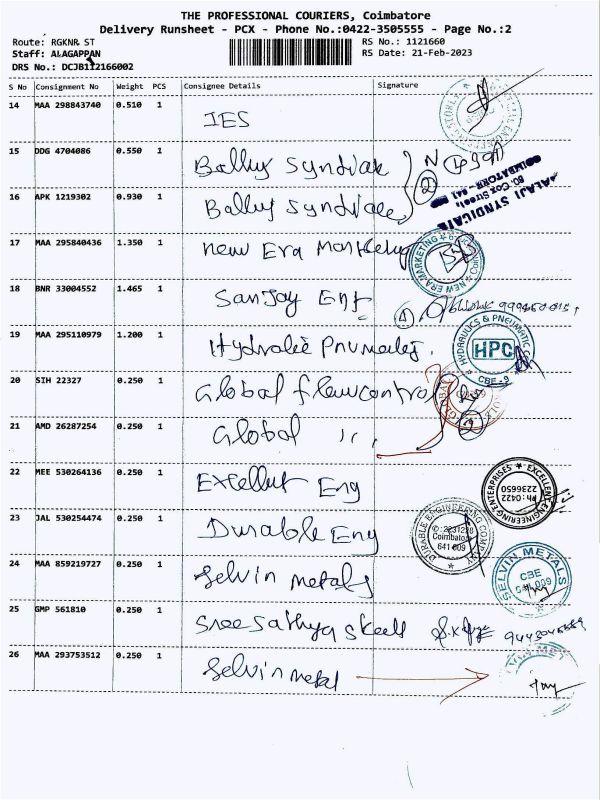 THE PROFESSIONAL COURIERS, Coimbatore
Delivery Runsheet - PCX - Phone No.:0422-3505555 - Page No.:2
Route: RGKNR ST
Staff: ALAGAPPAN
DRS No.: DCJB112166002
RS No.: 1121660
RS Date: 21-Feb-2023
S No Consignment No Weight PCS Consignee Details Signature
14 MAA 298843740 0.510 1 IES
15 DDG 4704086 0.550 1 Ballus Syndicate
16 APK 1219302 0.930 1 Ballus Syndicate
2
ALAJI SYNDICATE
80, Cox Street,
COIMBATORE - 641
17 MAA 295840436 1.350 1 New Era Marketing
NEW ERA MARKETING
18 BNR 33004552 1.465 1 Sanjay Eng
19 MAA 295110979 1.200 1 Hydralic Pnumatic
HYDRAULICS & PNEUMATIC
HPC
CBE - 9
20 SIH 22327 0.250 1 Global flowcontrol
GLOBAL
21 AMD 26287254 0.250 1 Global ,, ,,
22 MEE 530264136 0.250 1 Excellent Eng
EXCELLENT ENGINEERING ENTERPRISES
Ph: 0422
2236650
23 JAL 530254474 0.250 1 Durable Eng
DURABLE ENGINEERING COMPANY
Coimbatore
641 009
24 MAA 859219727 0.250 1 Selvin metals
SELVIN METALS
CBE
641 009
25 GMP 561810 0.250 1 Sree Sathya Steell
26 MAA 293753512 0.250 1 Selvin metal